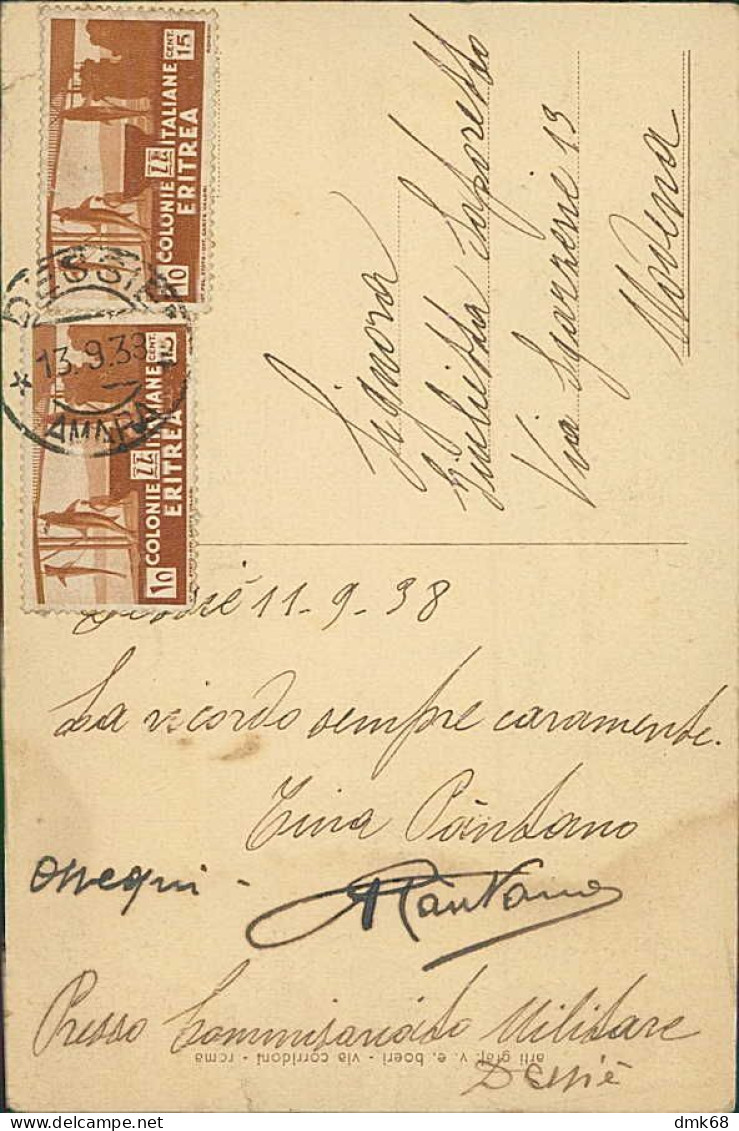 COLONIE ITALIANE
ERITREA
CENT. 15
10
COLONIE ITALIANE
ERITREA
CENT. 15
10
DESSIE
13.9.38
AMARA
Signora
Giulietta Saporetto
Via Sgarzerie 13
Modena
Dessiè 11-9-38
La ricordo sempre caramente.
Tina Pàntano
Ossequi -
Pantano
Presso Commisariato Militare
Dessiè
arti graf. v. e. boeri - via corridoni - roma
dmk68